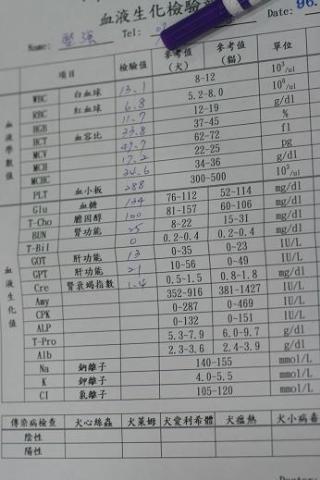 血液生化檢驗
Date: 96.
Name: 堅強 Tel:
項目 檢驗值 參考值(犬) 參考值(貓) 單位
血液學數值
WBC 白血球 13.1 8-12 10³/ul
RBC 紅血球 6.8 5.2-8.0 10⁶/ul
HGB 11.7 12-19 g/dl
HCT 血容比 33.8 37-45
MCV 49.7 62-72 fl
MCH 17.2 22-25 pg
MCHC 34.6 34-36 g/dl
PLT 血小板 288 300-500 10³/ul
血液生化值
Glu 血糖 134 76-112 52-114 mg/dl
T-Cho 膽固醇 100 81-157 60-106 mg/dl
BUN 腎功能 25 8-22 15-31 mg/dl
T-Bil 0 0.2-0.4 0.2-0.4 mg/dl
GOT 肝功能 13 0-35 0-23 IU/L
GPT 肝功能 21 10-56 0-49 IU/L
Cre 腎衰竭指數 1.4 0.5-1.5 0.8-1.8 mg/dl
Amy 352-916 381-1427 IU/L
CPK 0-287 0-469 IU/L
ALP 0-132 0-151 IU/L
T-Pro 5.3-7.9 6.0-9.7 g/dl
Alb 2.3-3.6 2.4-3.9 g/dl
Na 鈉離子 140-155 mmol/L
K 鉀離子 4.0-5.5 mmol/L
Cl 氯離子 105-120 mmol/L
傳染病檢查 犬心絲蟲 犬萊姆 犬愛利希體 犬瘟熱 犬小病毒
陰性
陽性